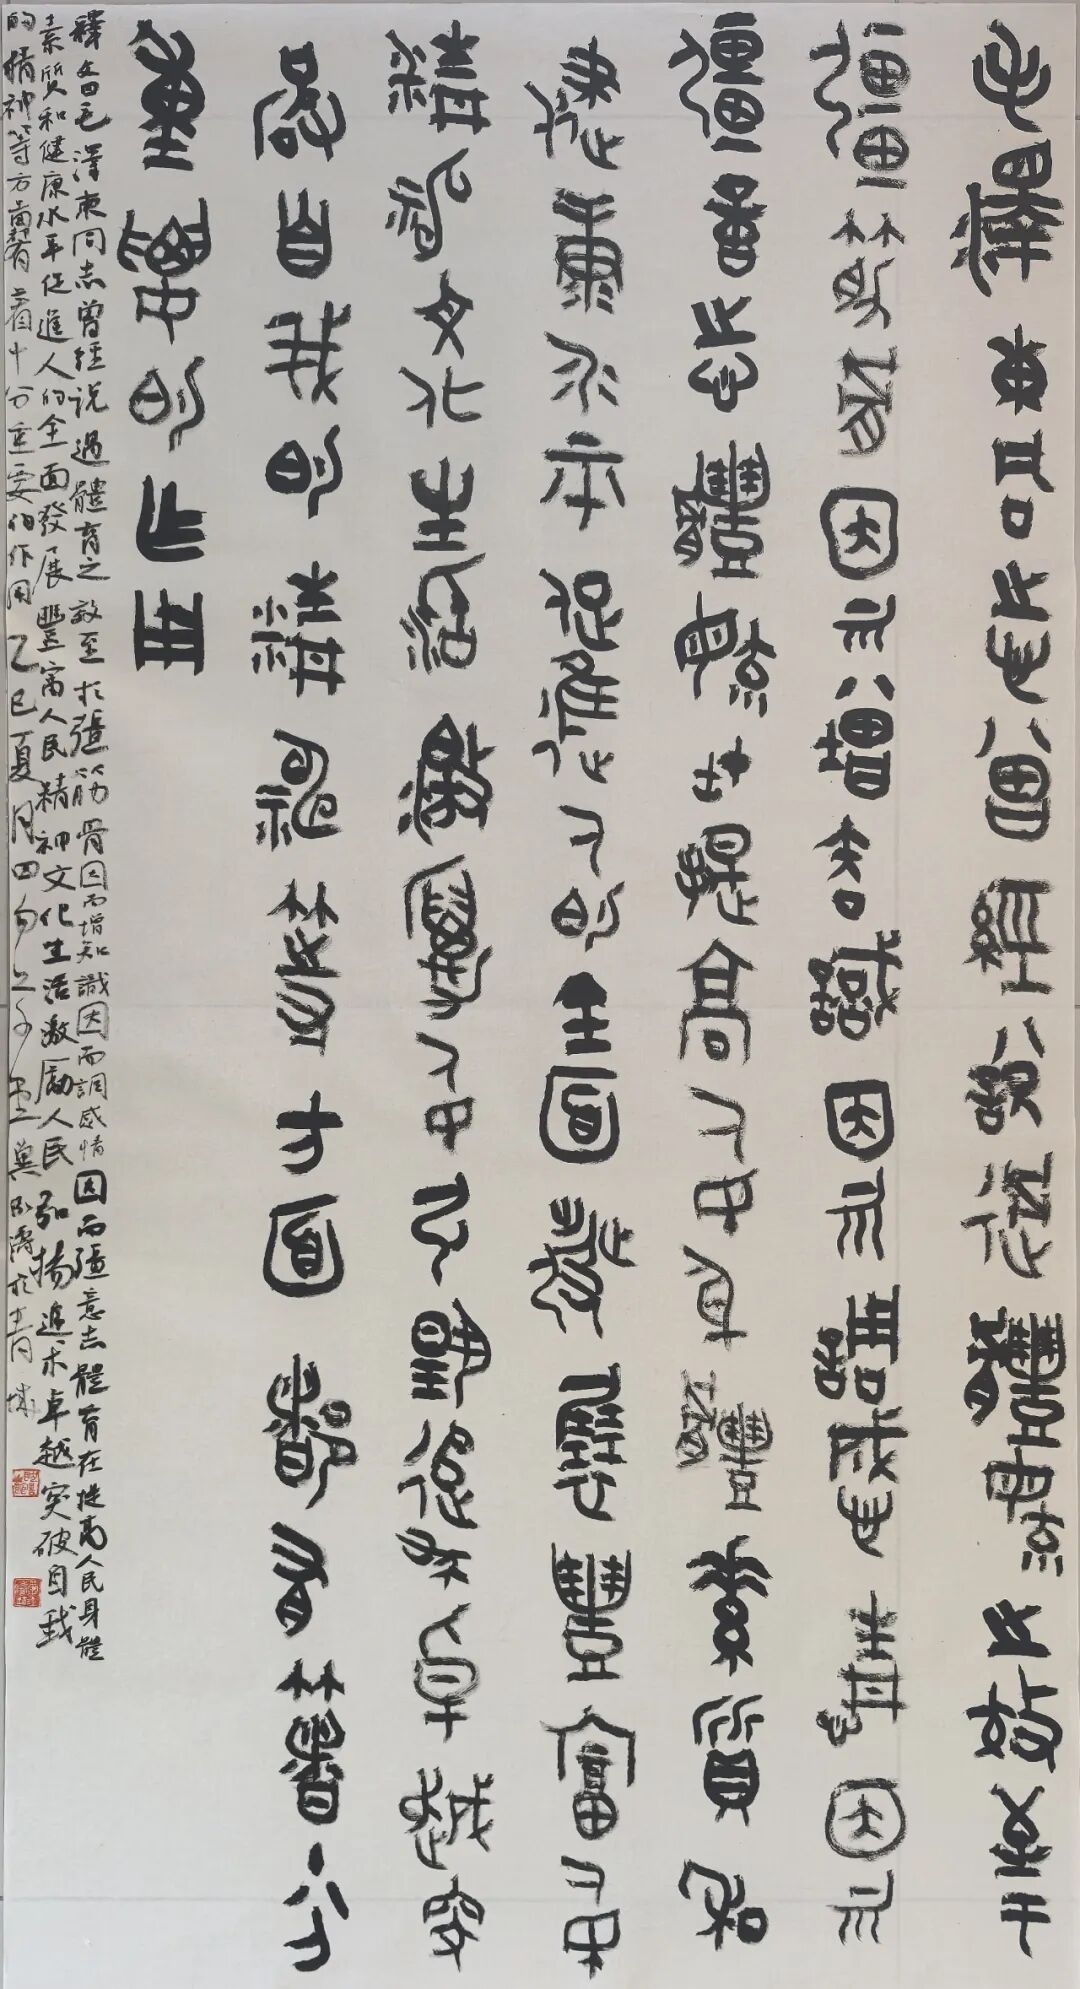 毛澤東同志曾經說過體育之效至于
彊筋骨因而增知識因而調感情因而
彊意志體育在提高人民身體素質和
健康水平促進人的全面發展豐富人民
精神文化生活激勵人民弘揚追求卓越突
破自我的精神等方面都有著十分
重要的作用
釋文 毛澤東同志曾經说過體育之效至於强筋骨因而增知識因而調感情因而强意志體育在提高人民身體
素質和健康水平促進人的全面發展豐富人民精神文化生活激勵人民弘揚追求卓越突破自我
的精神等方面都有着十分重要的作用乙巳夏月四